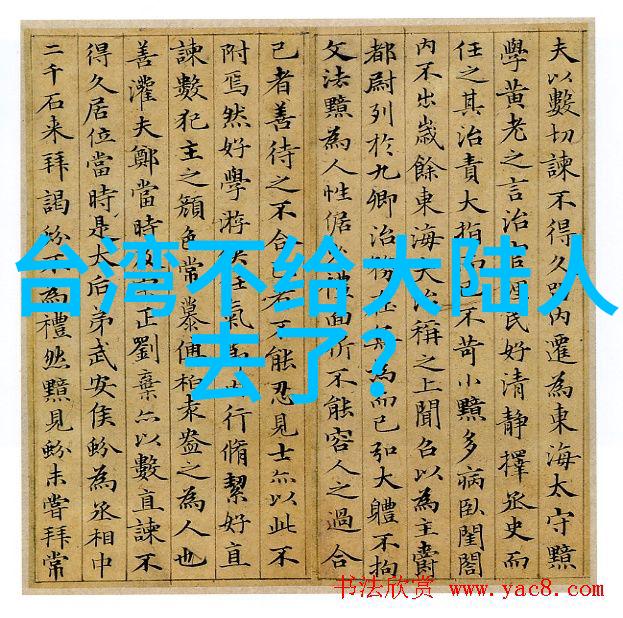 夫以數切諫不得久內遷為東海太守黯
學黃老之言治官民好清静擇丞史而
任之其治責大指已不苛小黯多病臥閨閤
內不出歲餘東海大治稱之上聞召以為主爵
都尉列於九卿治務在為而已弘大體不拘
文法黯為人性倨禮面折不能容人之過合
己者善待之不合己不能忍見士亦以此不
附焉然好學游俠氣行脩絜好直
諫數犯主之顏色常慕傅柏袁盎之為人也
善灌夫鄭當時正劉棄亦以數直諫不
得久居位當時是大后弟武安侯蚡為丞相中
二千石来拜謁蚡不為禮然黯見蚡未嘗拜常
台湾不给大陆人
去了?
书法欣赏 www.yac8.com